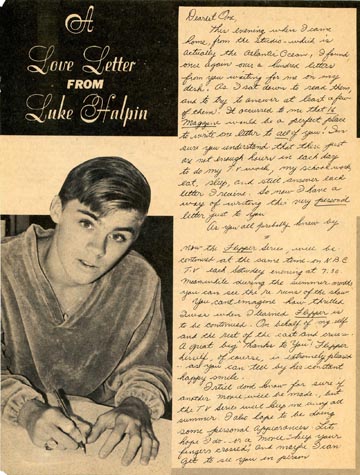 A
Love Letter
FROM
Luke Halpin
Dearest One,
This evening when I came
home from the studio - which is
actually the Atlantic Ocean, I found
once again over a hundred letters
from you waiting for me on my
desk. As I sat down to read them
and to try to answer at least a few
of them. It occurred to me that 16
Magazine would be a perfect place
to write one letter to all of you! I'm
sure you understand that there just
are not enough hours in each day
to do my T.V. work, my school work
eat, sleep, and still answer each
letter I receive. So now I have a
way of writing this very personal
letter just to you
As you all probably know by
now the Flipper Series will be
continued at the same time on N.B.C.
T.V. each Saturday evening at 7:30
Meanwhile during the summer months
you can see the re runs of the show
You cant imagine how thrilled
I was when I learned Flipper is
to be continued. On behalf of my self
and the rest of the cast and crew -
A great big "thanks to you"! Flipper
herself, of course, is extremely please
as you can tell by her constant
happy smile.
I still dont know for sure if
another movie will be made, but
the T.V. Series will keep me busy all
summer. I also hope to be doing
some personal Appearances. Lets
hope I do - or a movie - keep your
fingers crossed, and maybe I can
get to see you in person